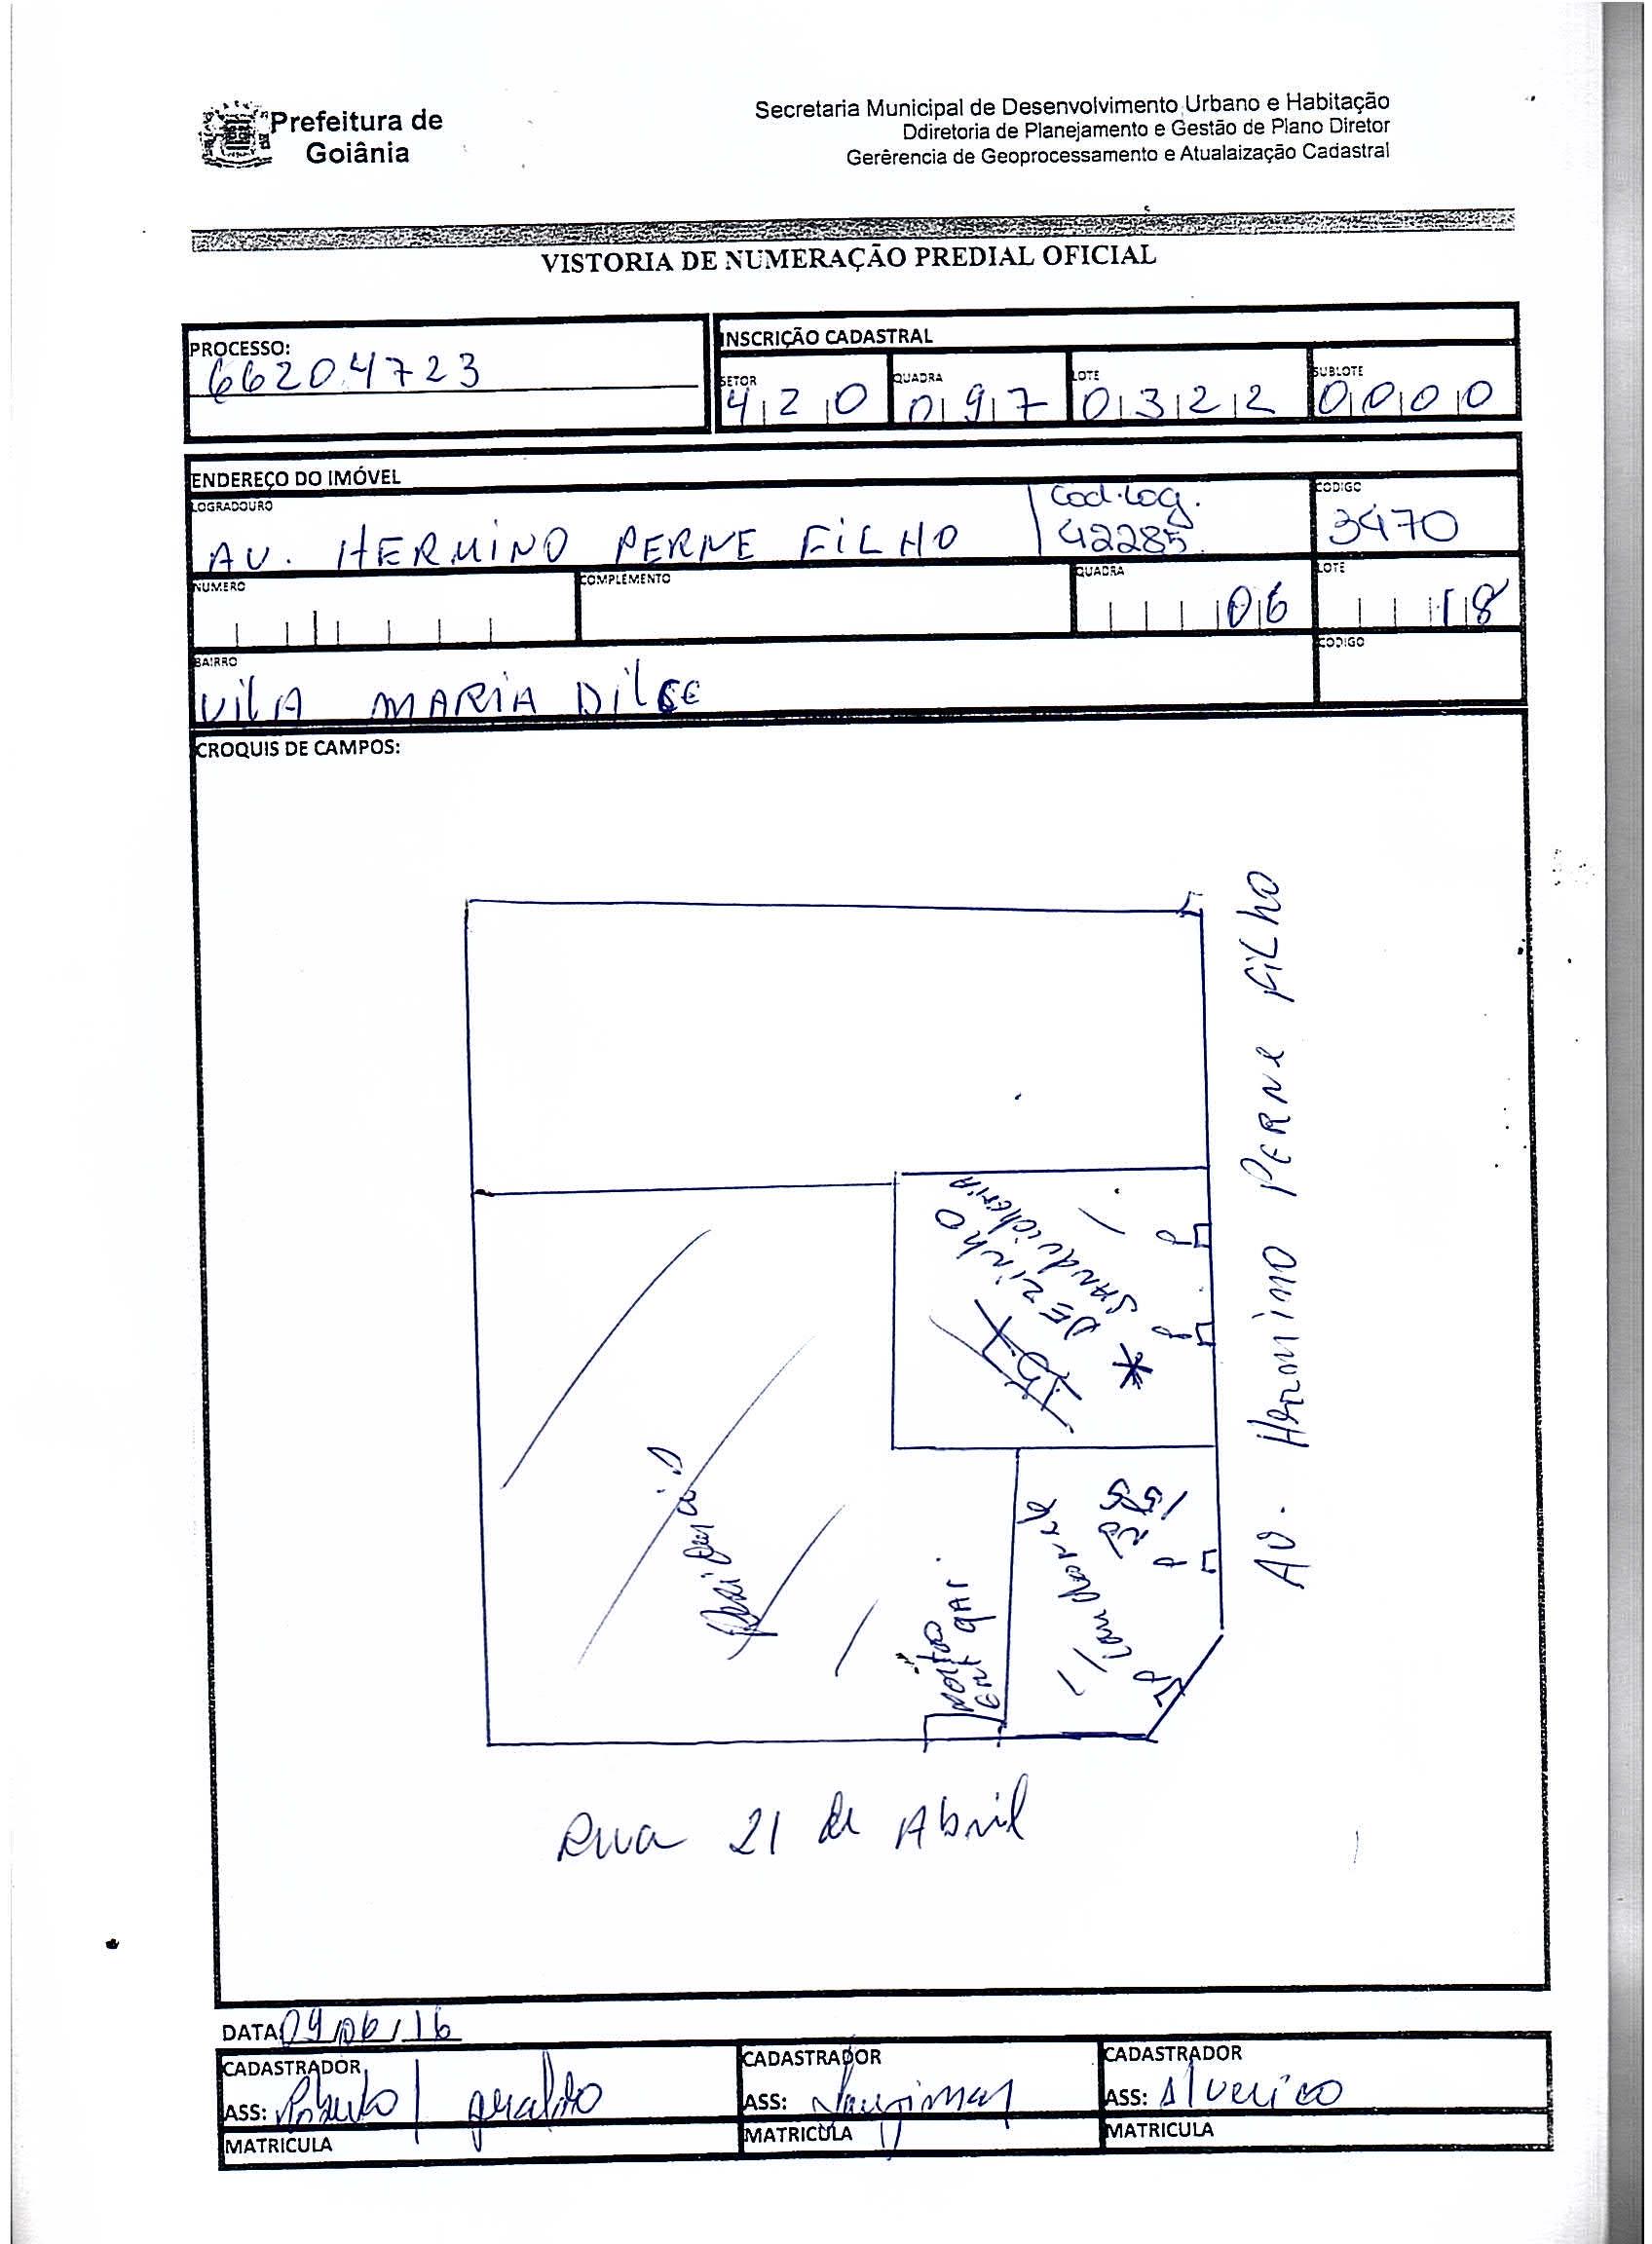 Prefeitura de
Goiânia
Secretaria Municipal de Desenvolvimento Urbano e Habitação
Ddiretoria de Planejamento e Gestão de Plano Diretor
Gerêrencia de Geoprocessamento e Atualaização Cadastral
VISTORIA DE NUMERAÇÃO PREDIAL OFICIAL
PROCESSO:
66204723
INSCRIÇÃO CADASTRAL
SETOR QUADRA LOTE SUBLOTE
420 097 0322 0000
ENDEREÇO DO IMÓVEL
LOGRADOURO
AV. HERMINO PERNE FILHO
Cod.Log.
42285
CODIGO
3470
NUMERO COMPLEMENTO QUADRA LOTE
06 18
BAIRRO CODIGO
VILA MARIA DILCE
CROQUIS DE CAMPOS:
AV. Hermino PERNE FILHO
DEZINHO
SANDUICHERIA
*
Portão
ENT gAr.
Rua 21 de Abril
DATA 09/06/16
CADASTRADOR CADASTRADOR CADASTRADOR
ASS: Roberto / geraldo ASS: ASS:
MATRICULA MATRICULA MATRICULA